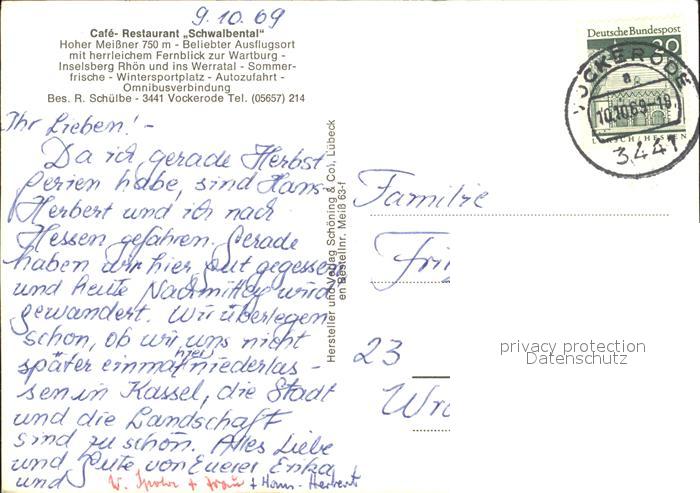 9.10.69
Café- Restaurant „Schwalbental"
Hoher Meißner 750 m - Beliebter Ausflugsort
mit herrleichem Fernblick zur Wartburg -
Inselsberg Rhön und ins Werratal - Sommer-
frische - Wintersportplatz - Autozufahrt -
Omnibusverbindung
Bes. R. Schülbe - 3441 Vockerode Tel. (05657) 214
Ihr Lieben! -
Da ich gerade Herbst
ferien habe, sind Hans-
Herbert und ich nach
Hessen gefahren. Gerade
haben wir hier gut gegessen
und heute Nachmittag wird
gewandert. Wir überlegen
schon, ob wir uns nicht
später einmal hier niederlas-
sen in Kassel, die Stadt
und die Landschaft
sind zu schön. Alles Liebe
und Gute von Euerer Erika
und
+ Frau + Hans-Herbert
Hersteller und Verlag Schöning & Co., Lübeck
Bestellnr. Meiß 63-f
Deutsche Bundespost
20
VOCKERODE
a
10.10.69-18
3441
LORSCH/HESSEN
Familie
23
privacy protection
Datenschutz